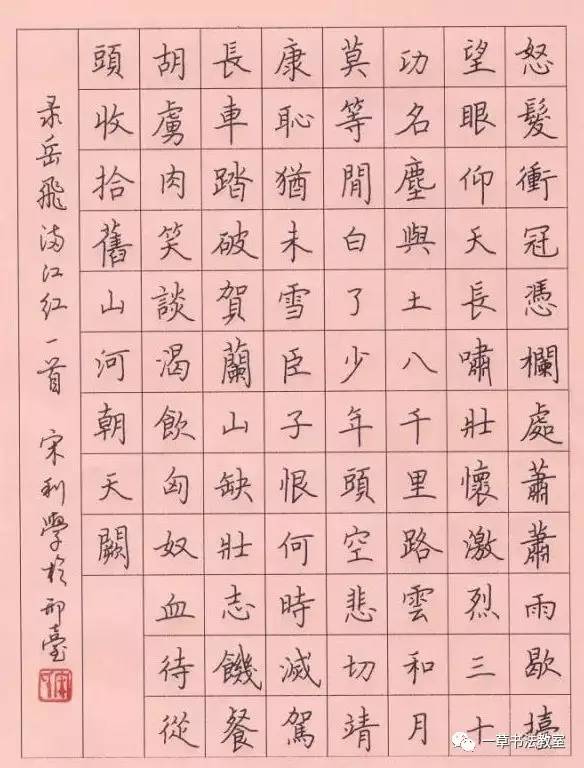 怒髮衝冠憑欄處蕭蕭雨歇擡
望眼仰天長嘯壯懷激烈三十
功名塵與土八千里路雲和月
莫等閒白了少年頭空悲切靖
康恥猶未雪臣子恨何時滅駕
長車踏破賀蘭山缺壯志饑餐
胡虜肉笑談渴飲匈奴血待從
頭收拾舊山河朝天闕
录岳飛满江红一首 宋利學於邢臺
一草书法教室